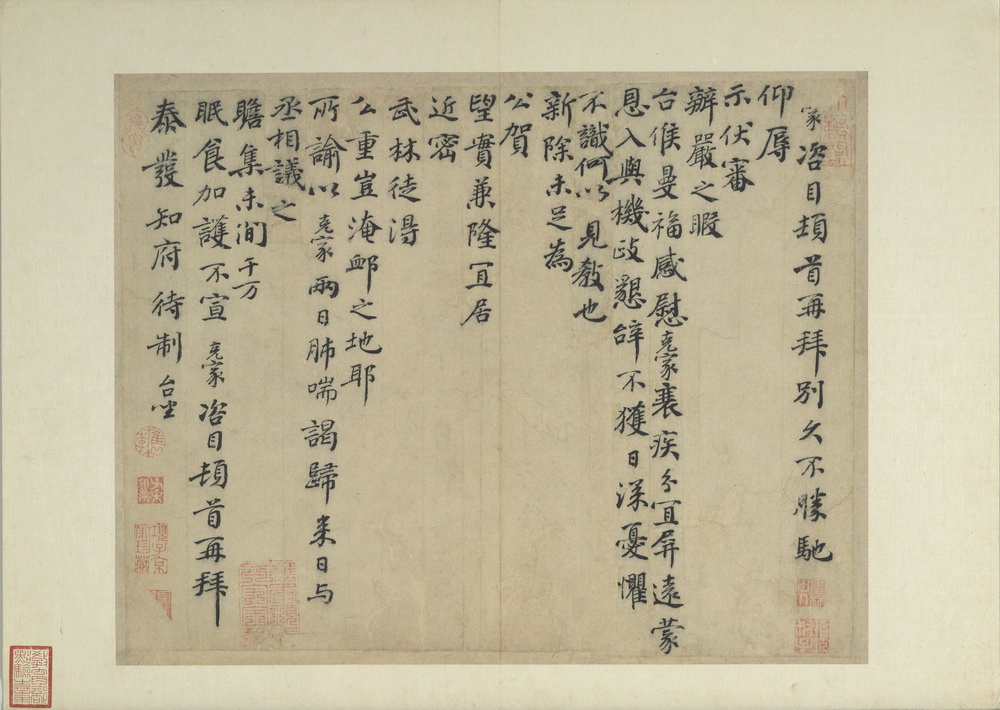 家咨目頓首再拜別久不勝馳
仰辱
示伏審
辦嚴之暇
台候曼福感慰克家衰疾分宜屏遠蒙
恩入與機政懇辭不獲日深憂懼
不識何以見教也
新除未足為
公賀
望實兼隆宜居
近密
武林徒得
公重豈淹卹之地耶
所諭以克家兩日肺喘謁歸來日与
丞相議之
瞻集未間千万
眠食加護不宣 克家咨目頓首再拜
泰發知府待制台坐